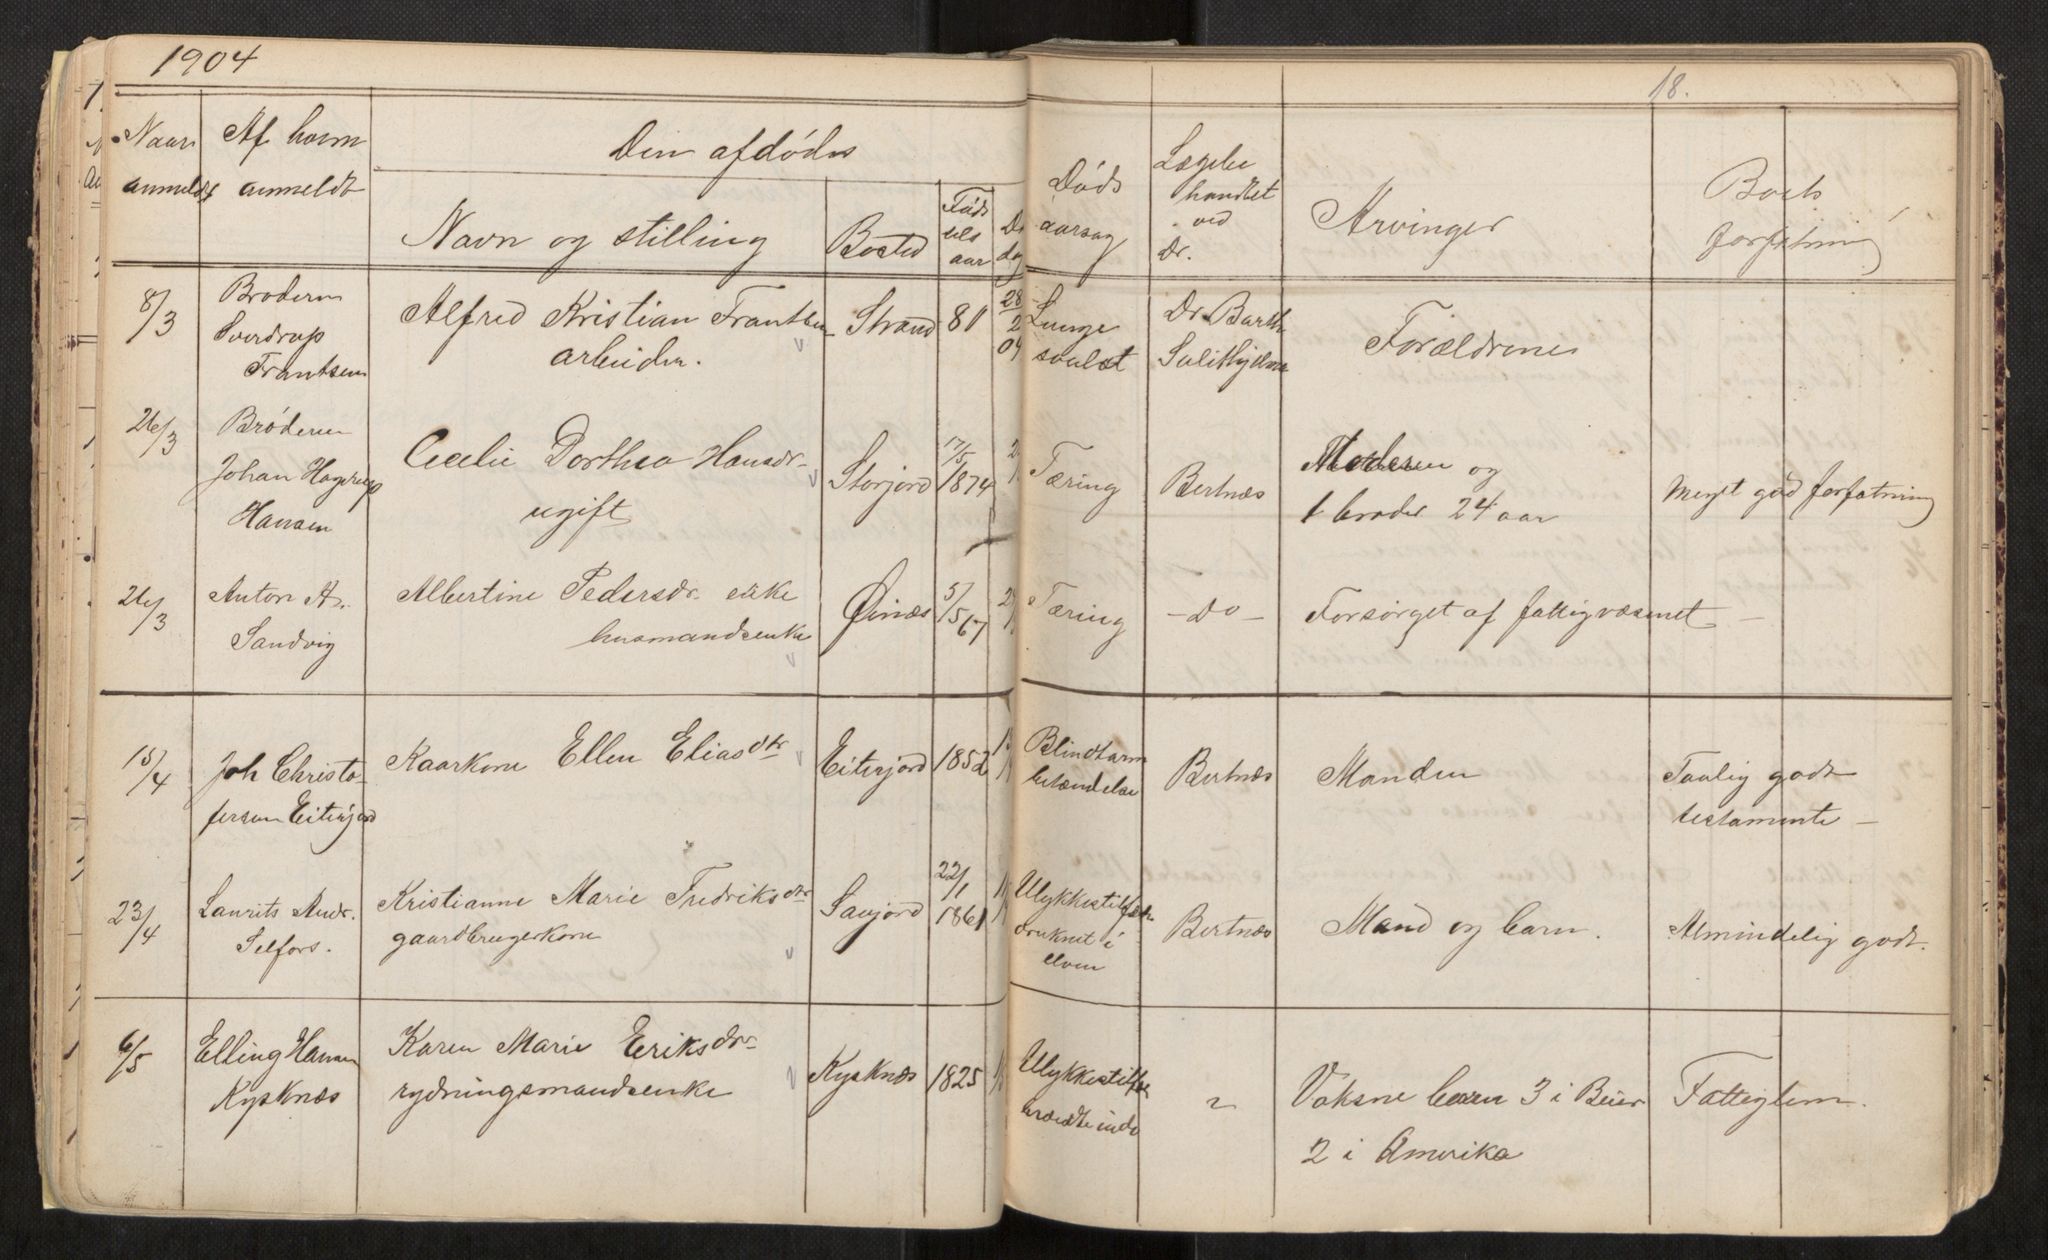 1904
18.
Naar anmeldt
Af hvem anmeldt
Den afdødes
Navn og stilling
Bosted
Føds els aar
Døds aarsag
Lægebe handlet ved Dr.
Arvinger
Boets forfatning
8/3
Broderen Sverdrup Frantsen
Alfred Kristian Frantsen
arbeider.
Strand
81
28/2 04
Lunge
Dr. Barth Sulithjelma
Forældrene
26/3
Brøderen Johan Hagerup Hansen
Cecelie Dorthea Hansdr.
ugift
Storjord
17/5 1874
Tæring
Bertnæs
Moderen og
1 broder 24 aar
Meget god forfatning
26/3
Anton A. Sandvig
Albertine Pedersdr. enke
husmandsenke
Øinæs
5/5 67
Tæring
– Do –
Forsørget af fattigvæsenet –
15/4
Joh Christo fersen Eiterjord
Kaarkone Ellen Eliasdtr
Eiterjord
1852
Blindtarm betændelse
Bertnæs
Manden
Taalig godt
testamente –
23/4
Laurits Andr. Selfors.
Kristianne Marie Fredriksdtr
gaardbrugerkone
Savjord
22/1 1861
Ulykkestilfælde druknet i elven
Bertnæs
Mand og barn.
Almindelig godt.
6/5
Elling Hansen Kysknæs
Karen Marie Eriksdr
rydningsmandsenke
Kysknæs
1825
Ulykkestilfæ brændte inde
"
Voksne barn 3 i Beier
2 i Amerika
Fattiglem.